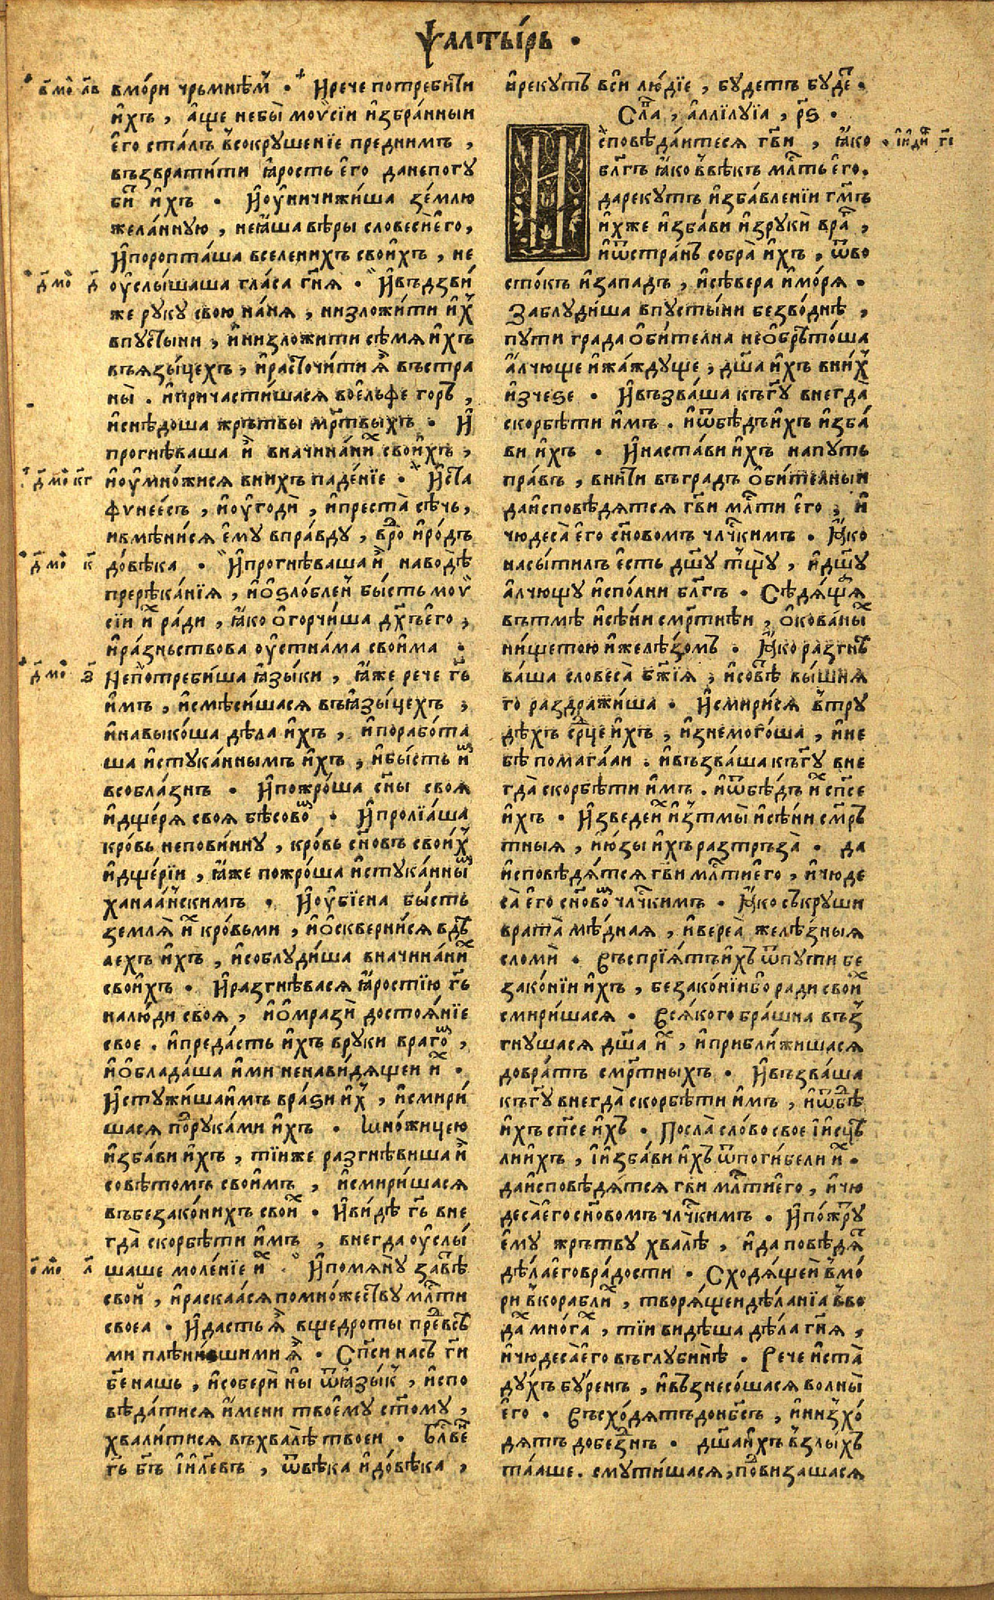 Ѱалты́рь .
вмо́ри чрьмнѣⷨ . И҆рече потреби́ти
и҆́хъ , а҆́ще небы̀ моѵ̈се́и и҆збра́нныи
є҆го̀ ста́лъ в̾сокрꙋше́нїе преднимъ ,
възврати́ти ꙗ҆́рость є҆го̀ данепогꙋ
би́ⷮ и҆́хъ . И҆ оу҆ничижи́ша зе́млю
жела́ннꙋю , неꙗ҆́ша вѣ́ры словесѝ є҆го̀ ,
И҆поропта́ша вселенїихъ свои́хъ , не
оу҆слы́шаша гла́са гн҃я . И҆възⸯдви́
же рꙋкꙋ свою̀ на́ня , низложи́ти и҆ⷯ
впꙋсты́ни , и҆низложи́ти сѣ́мя и҆́хъ
въязы́цехъ , и҆расточи́ти ѧ҆̀ въстра
ны̀ . и҆причасти́шася воє҆льфе́горъ ,
и҆снѣдо́ша жрътвы мр҃твыхъ . И҆
прогнѣ́ваша и҆̀ вначина́нїи свои́хъ ,
и҆оу҆мно́жися внихъ паде́нїе . И҆ста
фꙋнее́съ , и҆оу҆годѝ , и҆преста̀ сѣ́чь ,
и҆вмѣни́ся є҆мꙋ̀ впра́вдꙋ , вро́ⷣ и҆ро́дъ
до́вѣка . И҆прогнѣ́ваша и҆̀ наводѣ̀
пререка́нїя , и҆ѻ҆ѕло́бленъ бы́сть моѵ̈
се́и и҆́хъ ра́ди , ꙗ҆́ко ѻ҆горчи́ша дх҃ъ є҆го̀ ,
и҆ра́зньствова оу҆стна́ма свои́ма .
Непотреби́ша ꙗ҆зы́ки , ꙗ҆́же речѐ гⷭ҇ь
и҆́мъ , и҆смѣси́шася въꙗ҆зы́цехъ ,
и҆навыко́ша дѣ́ла и҆́хъ , и҆порабо́та
ша и҆стꙋка́ннымъ и҆́хъ , и҆бы́сть и҆́ⷨ
всобла́знъ . И҆пожро́ша сн҃ы своя̀
и҆дщѐря своя̀ бѣсово́ⷨ . И҆пролїа́ша
кро́вь непови́ннꙋ , кро́вь сн҃о́въ свои́хъ
и҆дще́рїи , ꙗ҆́же пожро́ша и҆стꙋка́нныⷨ
ханаа́нскимъ . И҆ оу҆бїена бы́сть
земля̀ и҆́хъ кро́вьми , и҆ѻ҆скверни́ся вдѣ́
аехъ и҆́хъ , и҆соблꙋди́ша вначина́нїиⷯ
свои́хъ . И҆разгнѣвася ꙗ҆́ростїю гⷭ҇ь
налю́ди своя̀ , и҆ѻ҆мразѝ достоя́нїе
своѐ . и҆преда́сть и҆́хъ врꙋки враго́ⷨ ,
и҆ѻ҆блада́ша и҆́ми ненави́дящеи и҆́ⷯ .
И҆стꙋжи́ша и҆́мъ врази́ и҆́ⷯ , и҆смири́
шася по́ⷣрꙋка́ми и҆́хъ . Мно́жицею
и҆зба́ви и҆́хъ , ті́иже разгнѣвиша и҆̀
совѣ́томъ свои́мъ , и҆смири́шася
въбезако́нихъ свои́ⷯ . И҆ви́дѣ гⷭ҇ь вне
гда̀ скорбѣ́ти и҆́мъ , внегда оу҆слы́
шаше моле́нїе и҆́ⷯ . И҆помянꙋ̀ завѣ́ⷮ
сво́и , и҆раска́ася помно́жествꙋ млⷭ҇ти
своеа̀ . И҆да́сть ѧ҆̀ вщедро́ты пре́ⷣвсѣ́
ми плѣни́вшими ѧ҆̀ . Сп҃си насъ гⷭ҇и
бж҃е нашь , и҆собери́ ны ѿꙗ҆зы́къ , и҆спо
вѣ́датися и҆́мени твоемꙋ̀ ст҃омꙋ ,
хвали́тися въхвалѣ̀ твоеи . Блⷭ҇ве́нъ
гⷭ҇ь бг҃ъ і҆и҃левъ , ѿвѣ́ка и҆до́вѣка ,
и҆рекꙋтъ вси лю́дїе , бꙋдетъ бꙋде́ⷮ .
Сла́ , аллилꙋїа , рѕ҃ .
И҆споведа́итеся гв҃и , ꙗ҆́ко
бл҃гъ ꙗ҆́ко ввѣ́къ млⷭ҇ть є҆го̀ .
дарекꙋ́тъ и҆зба́вленїи гмⷭ҇ъ
и҆́хже и҆зба́ви и҆зрꙋкѝ вра́ⷤ ,
и҆ѿстра́нъ собра̀ и҆́хъ , ѿво
сто́къ и҆за́падъ , и҆сѣ́вера и҆мо́ря .
Заблꙋди́ша впꙋсты́ни безво́днѣ ,
пꙋти гра́да ѻ҆би́телна неѻ҆брѣто́ша
а҆́лчꙋще и҆жа́ждꙋще , дш҃а и҆́хъ вни́ⷯ
и҆зче́зе . И҆възва́ша къгꙋ внегда̀
скорбѣ́ти и҆́мъ . и҆ѿбѣ́дъ и҆́хъ и҆зба́
ви и҆́хъ . И҆наста́ви и҆́хъ напꙋть
пра́въ , вни́ти въгра́дъ ѻ҆би́телныи
даи҆сповѣ́дятся гв҃и млⷭ҇ти є҆го̀ , и҆
чюдеса̀ є҆го̀ сн҃овомъ чл҃чкимъ . Ꙗ҆́ко
насы́тилъ є҆сть дш҃ꙋ тщꙋ , и҆дш҃ꙋ
а҆́лчющꙋ и҆спо́лни бл҃гъ . Сѣдя́щая
вътмѣ и҆сѣ́ни смр҃тнѣи , ѻ҆кова́ныⷯ
нището́ю и҆желѣ́зомъ . Ꙗ҆́ко разгнѣ́
ваша словеса̀ бж҃ія , и҆совѣ́ⷮ вы́шня
го раздражи́ша . И҆смири́ся в̾трꙋ
дѣ́хъ срⷣце и҆́хъ , и҆знемого́ша , и҆не
бѣ̀ помага́аи . и҆възва́ша къгꙋ вне
гда̀ скорбѣ́ти и҆́мъ . и҆ѿбѣ́дъ и҆́ⷯ сп҃се
и҆́хъ . И҆зведе и҆́ⷯ и҆зтмы̀ и҆сѣ́ни смр҃ъ
тныя , и҆ю҆зы и҆́хъ разтръза̀ . да
и҆сповѣ́дятся гв҃и млⷭ҇ти є҆го̀ , и҆чюде
са̀ є҆го̀ сн҃ово́ⷨ чл҃чкимъ . Ꙗ҆́ко съкрꙋши
врата̀ мѣ́дная , и҆вереа̀ желѣ́зныя
сломѝ . Въспрїятъ и҆́хъ ѿпꙋти бе
зако́нїи и҆́хъ , безако́нїи бо ра́ди свои́ⷯ
смири́шася . Вся́кого бра́шна въз
гнꙋшася дш҃а и҆́ⷯ , и҆прибли́жишася
довра́тъ смр҃тныхъ . И҆възва́ша
къгꙋ внегда̀ скорбѣ́ти и҆́мъ , и҆ѿбѣ́ⷣ
и҆́хъ сп҃се и҆́хъ . Посла̀ сло́во своѐ і҆и҆сцѣ
ли и҆́хъ , і҆и҆зба́ви и҆́хъ ѿпоги́бели и҆́ⷯ .
даи҆сповѣ́дятся гв҃и млⷭ҇ти є҆го̀ , и҆чю
деса̀ є҆го̀ сн҃овомъ чл҃чкимъ . И҆пожрꙋ
є҆мꙋ̀ жрътвꙋ хвалѣ̀ , и҆да пове́дяⷮ
дѣ́ла є҆го̀ вра́дости . Сходя́щеи в̾мо́
ри в̾корабли́ⷯ , творя́щеи дѣ́ланїа в̾во
да́ⷯ мно́гаⷯ , ті́и ви́дѣша дѣ́ла гн҃я ,
и҆чюдеса̀ є҆го̀ въглꙋбинѣ̀ . Рече и҆ста̀
дꙋ́хъ бꙋренъ , и҆възнесо́шася волны̀
є҆го̀ . Въсхо́дятъ донб҃съ , и҆низхо́
дятъ добе́знъ . дш҃а и҆́хъ в̾злы́хъ
та́аше . смꙋти́шася , по́ⷣвизашася